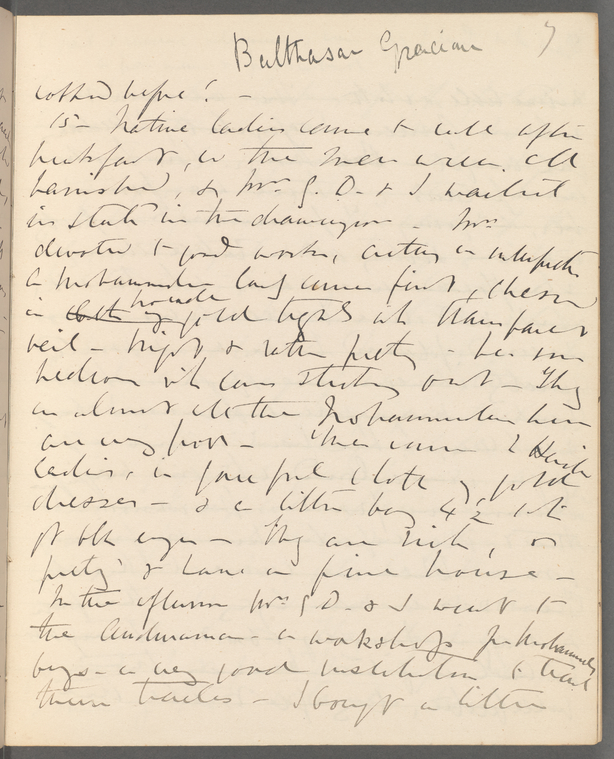 Balthasar Gracian 7
before! -
15 - Native ladies came to call after
breakfast, so the men were all
banished, & Mrs. G. D. & I waited
in state in the drawingroom - Mrs.
devoted to good works, acting as interpreter
a Mohammedan lady came first, dressed
in gold tights with transparent
veil - bright & rather pretty - her son
with ears sticking out - They
as almost all the Mohammedans here
are very poor - Then came 2 Hindu
ladies, in graceful cloth of gold
dresses - & a little boy 4½ with
black eyes - They are rich, &
pretty & have a fine house -
In the afternoon Mrs. G D. & I went to
the - a workshop for Mohammedan
boys - a very good institution to teach
them trades - I bought a little